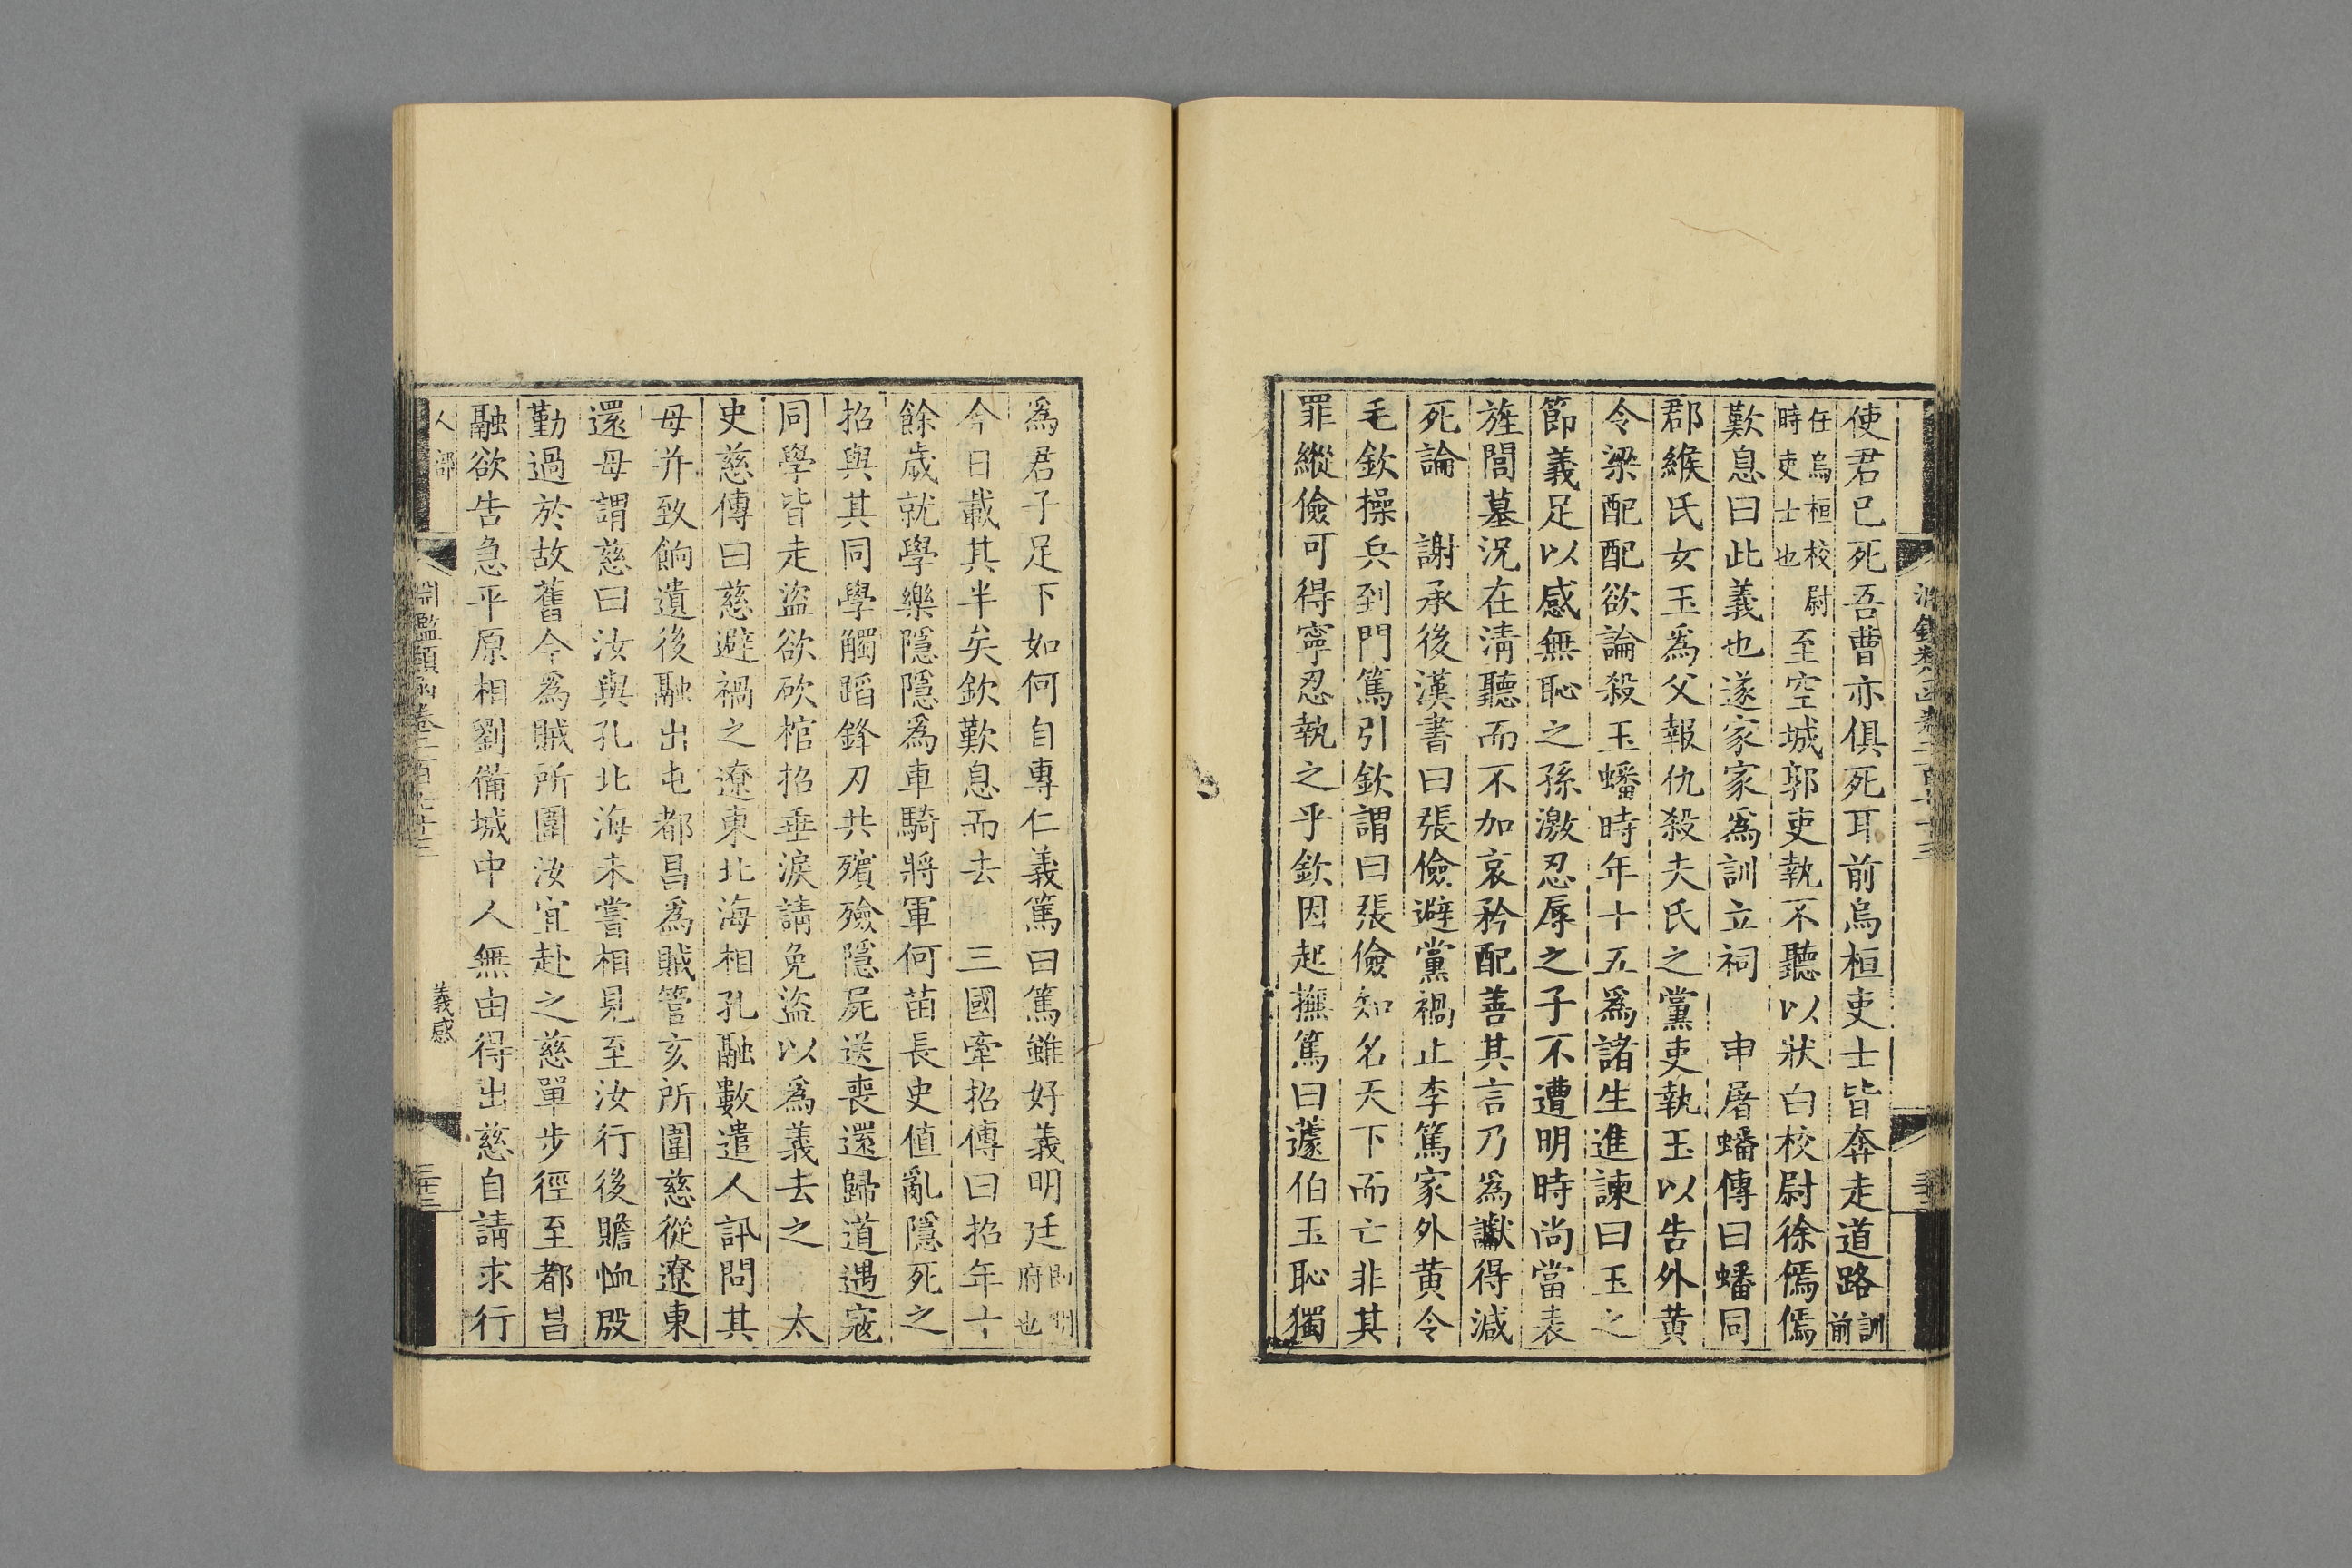 使君已死吾曹亦俱死耳前烏桓吏士皆奔走道路訓前
任烏桓校尉時吏士也至空城郭吏執不聽以狀白校尉徐傿傿
歎息曰此義也遂家家爲訓立祠　申屠蟠傳曰蟠同
郡緱氏女玉爲父報仇殺夫氏之黨吏執玉以告外黄
令梁配配欲論殺玉蟠時年十五爲諸生進諫曰玉之
節義足以感無恥之孫激忍辱之子不遭明時尚當表
旌閭墓況在清聽而不加哀矜配善其言乃爲讞得減
死論　謝承後漢書曰張儉避黨禍止李篤家外黄令
毛欽操兵到門篤引欽謂曰張儉知名天下而亡非其
罪縱儉可得寧忍執之乎欽因起撫篤曰蘧伯玉恥獨
爲君子足下如何自專仁義篤曰篤雖好義明廷即明府也
今日載其半矣欽歎息而去　三國牽招傳曰招年十
餘歲就學樂隱隱爲車騎將軍何苗長史值亂隱死之
招與其同學觸蹈鋒刃共殯殮隱屍送喪還歸道遇寇
同學皆走盜欲砍棺招垂淚請免盜以爲義去之　太
史慈傳曰慈避禍之遼東北海相孔融數遣人訊問其
母并致餉遺後融出屯都昌爲賊管亥所圍慈從遼東
還母謂慈曰汝與孔北海未嘗相見至汝行後贍恤殷
勤過於故舊今爲賊所圍汝宜赴之慈單步徑至都昌
融欲告急平原相劉備城中人無由得出慈自請求行
人部
淵鑑類函卷二百七十三
義感